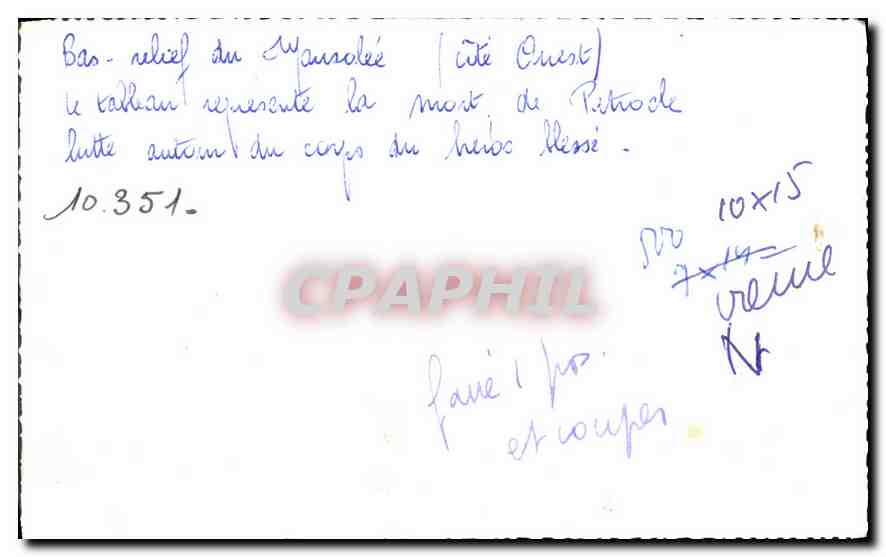 Bas-relief du Mausolée (côté Ouest)
le tableau représente la mort de Patrocle
lutte autour du corps du héros blessé.
10.351.
10x15
500
7x14
creme
N
CPAPHIL
faire 1 pos.
et couper